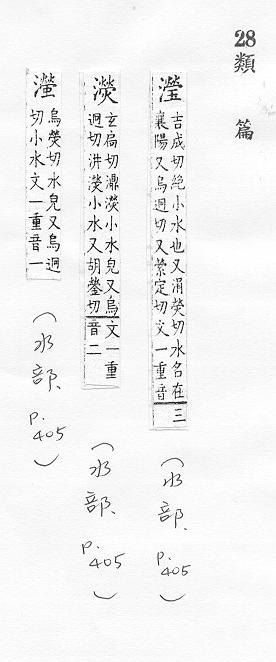 28
類篇
瀅
吉成切絶小水也又涓熒切水名在
襄陽又烏迥切又縈定切文一重音
三
（水部、
P.
405
）
濙
玄扃切濎濙小水皃又烏
迥切汫濙小水又胡鎣切
文一重
音二
（水部、
P.
405
）
濴
烏熒切水皃又烏迥
切小水文一重音一
（水部、
P.
405
）